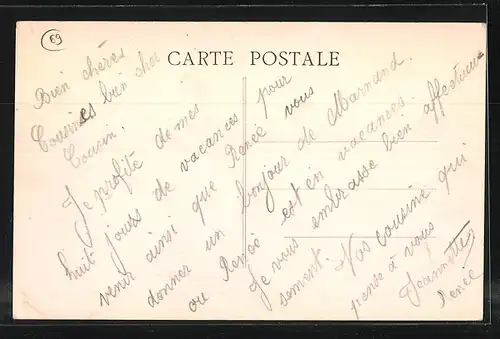 69
CARTE POSTALE
Bien chères
Cousines bien cher
Cousin.
Je profite de mes
huit jours de vacances pour
venir ainsi que Renée vous
donner un bonjour de Marnand.
ou Renée est en vacances.
Je vous embrasse bien affectueu
sement Vos cousine qui
pense à vous
Jeannette
Renée